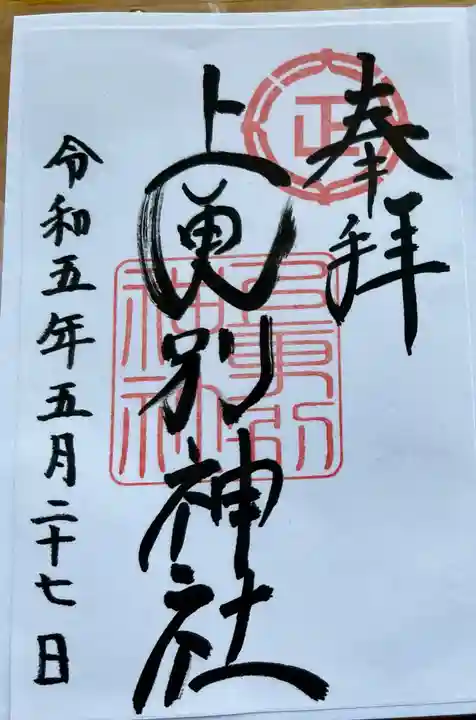 奉拝
上更別神社
令和五年五月二十七日
上更別
神社